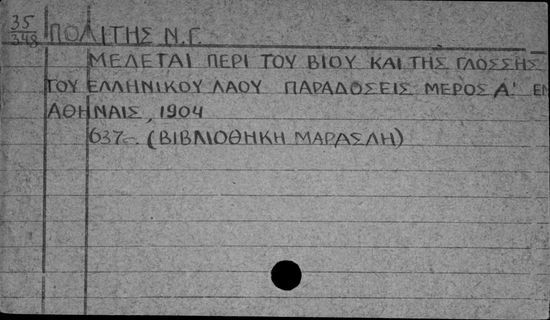 35
348
ΠΟΛΙΤΗΣ Ν.Γ.
ΜΕΛΕΤΑΙ ΠΕΡΙ ΤΟΥ ΒΙΟΥ ΚΑΙ ΤΗΣ ΓΛΟΣΣΗΣ
ΤΟΥ ΕΛΛΗΝΙΚΟΥ ΛΑΟΥ ΠΑΡΑΔΟΣΕΙΣ ΜΕΡΟΣ Α' ΕΝ
ΑΘΗΝΑΙΣ, 1904
637-. (ΒΙΒΛΙΟΘΗΚΗ ΜΑΡΑΣΛΗ)